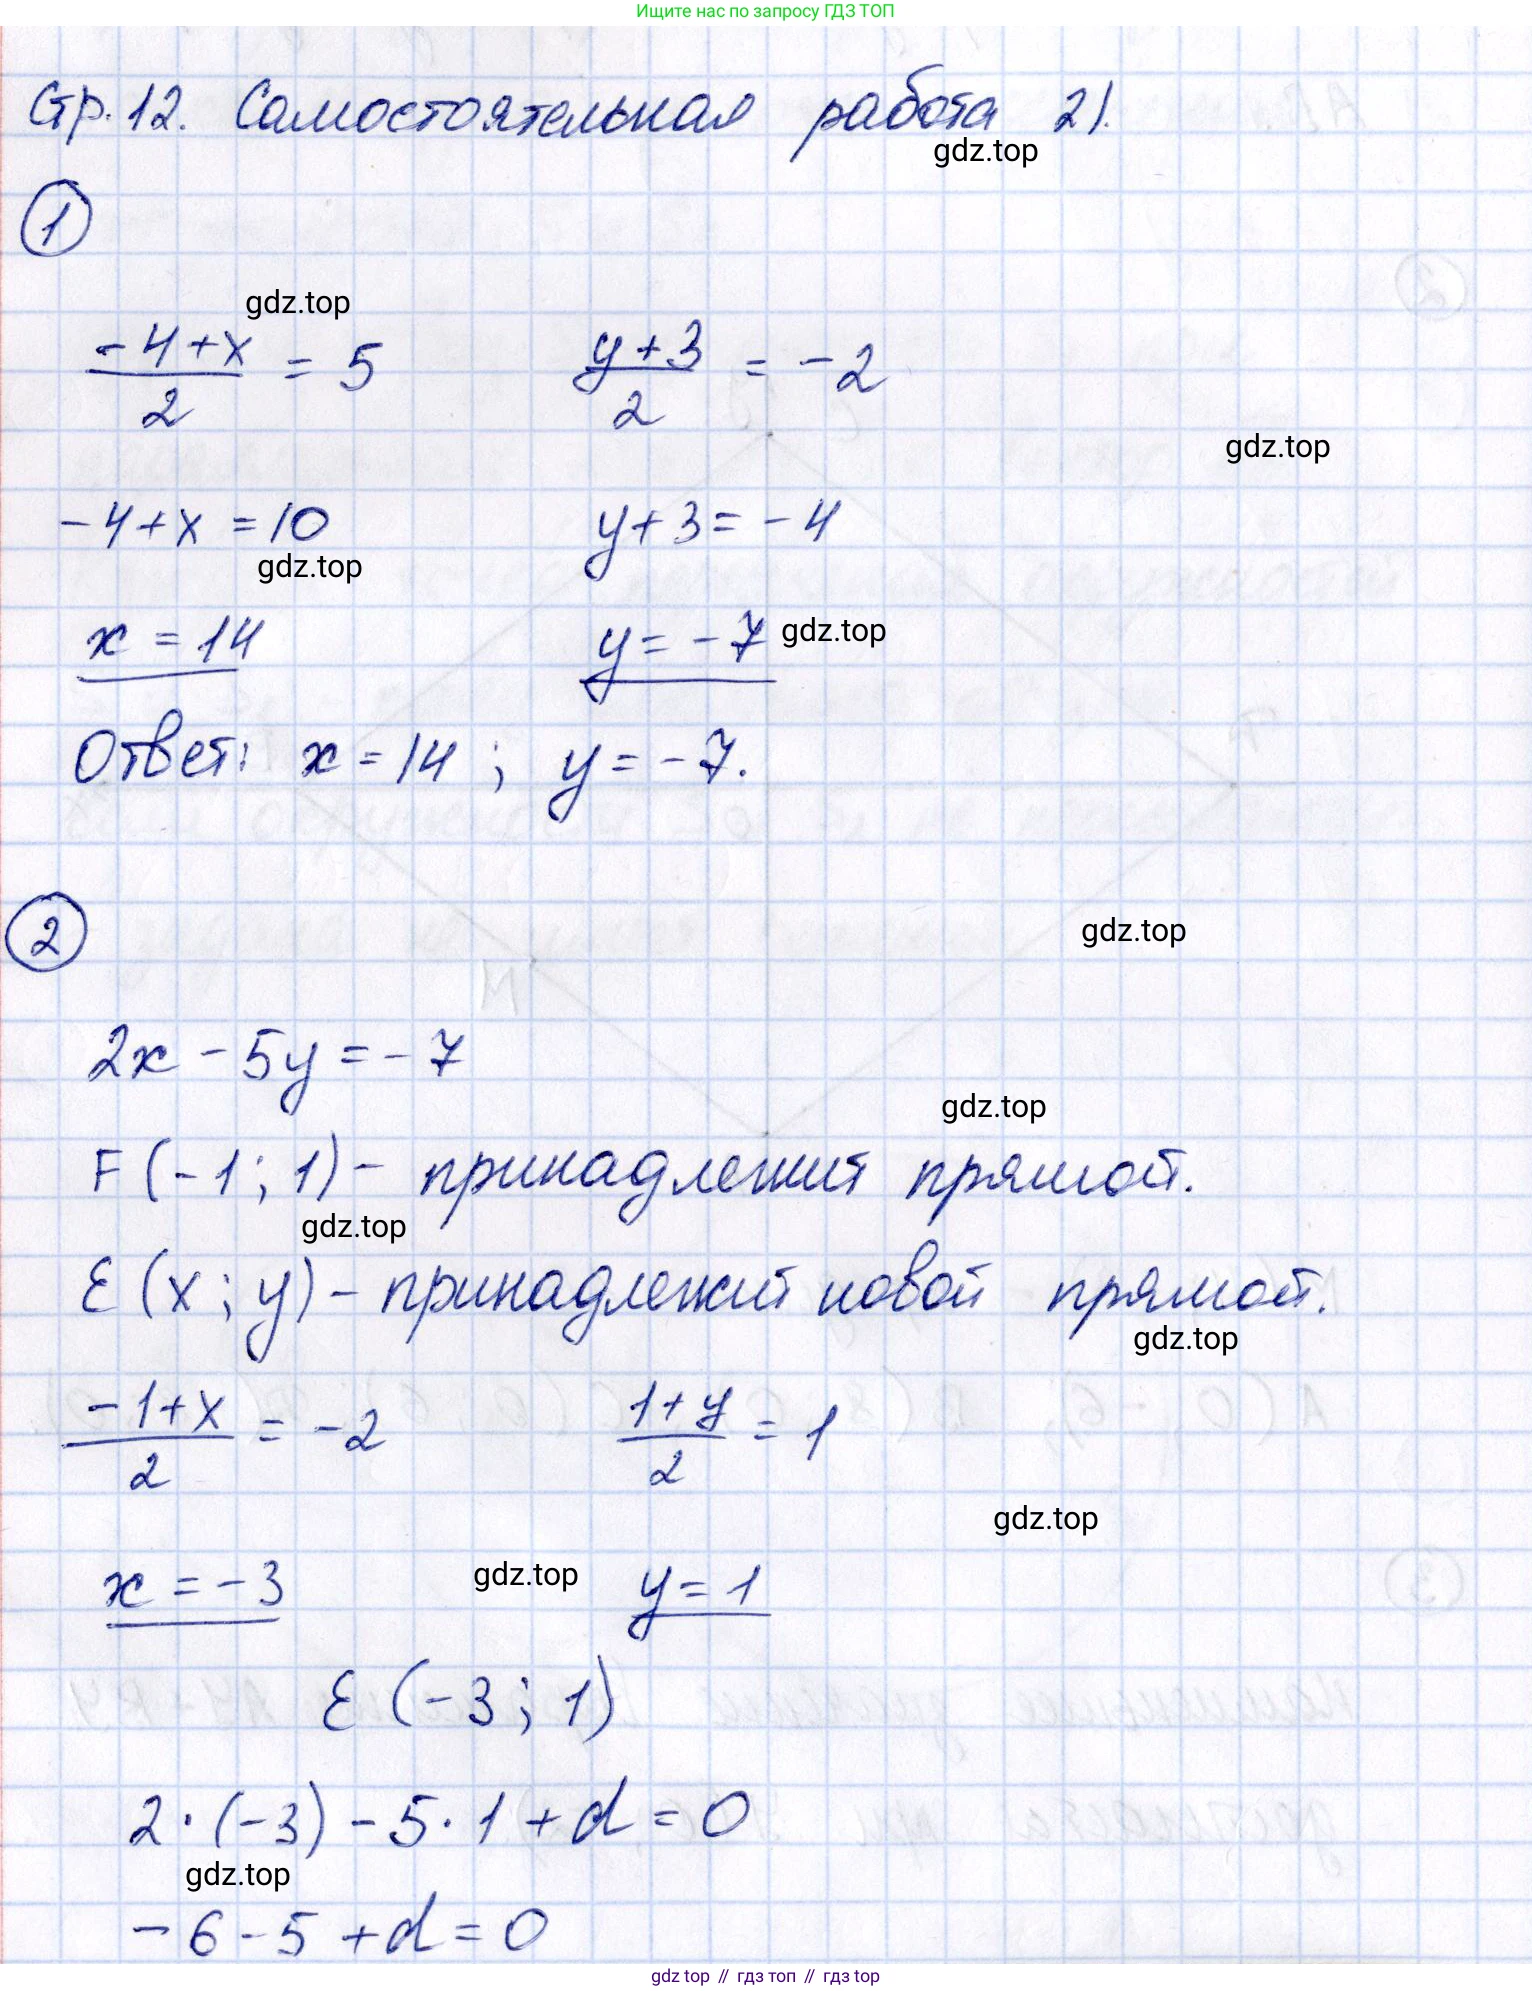 Ищите нас по запросу ГДЗ ТОП
Стр. 12. Самостоятельная работа 21.
gdz.top
1
gdz.top
(-4+x)/2 = 5    (y+3)/2 = -2
gdz.top
-4+x = 10    y+3 = -4
gdz.top
x = 14    y = -7
gdz.top
Ответ: x = 14; y = -7.
2
gdz.top
2x - 5y = -7
gdz.top
F (-1; 1) - принадлежит прямой.
gdz.top
E (x; y) - принадлежит новой прямой.
gdz.top
(-1+x)/2 = -2    (1+y)/2 = 1
gdz.top
gdz.top
x = -3    y = 1
E (-3; 1)
2·(-3) - 5·1 + d = 0
gdz.top
-6 - 5 + d = 0
gdz top // гдз топ // гдз top